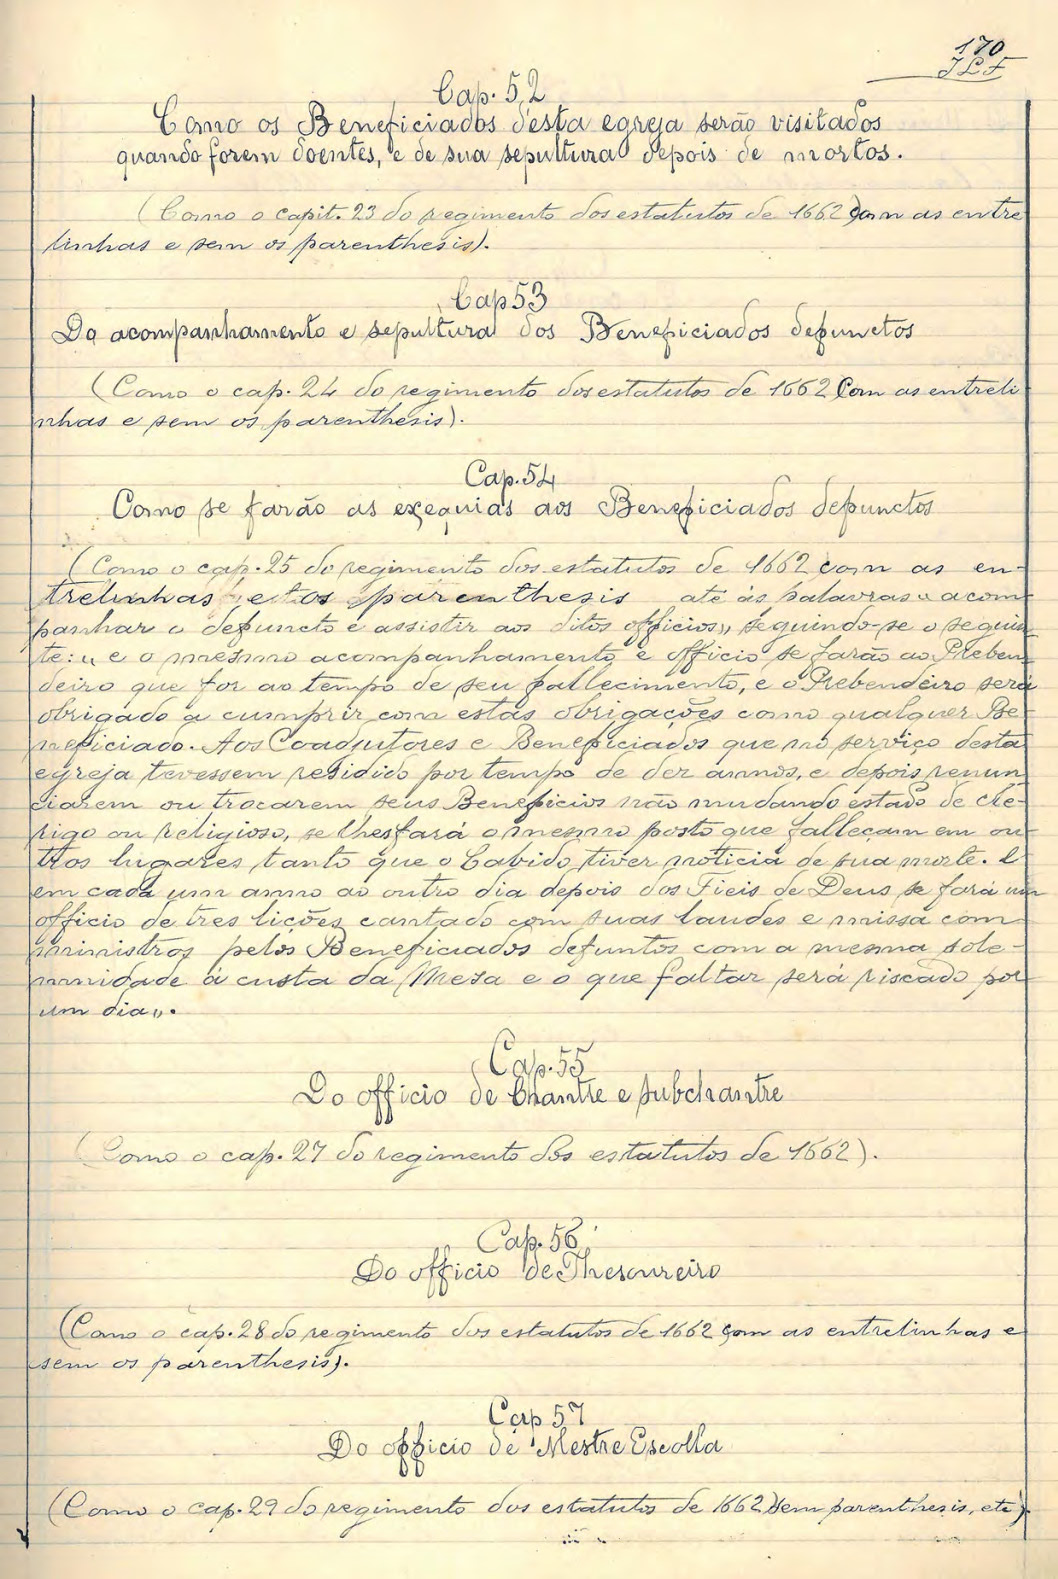 170
JLF
Cap. 52
Como os Beneficiados desta egreja serão visitados
quando forem doentes, e de sua sepultura depois de mortos.
(Como o capit. 23 do regimento dos estatutos de 1662 com as entre
linhas e sem os parenthesis).
Cap 53
Do acompanhamento e sepultura dos Beneficiados defunctos
(Como o cap. 24 do regimento dos estatutos de 1662 Com as entreli
nhas e sem os parenthesis).
Cap. 54
Como se farão as exequias aos Beneficiados defunctos
(Como o cap. 25 do regimento dos estatutos de 1662 com as en-
trelinhas e os parenthesis até ás palavras „ acom
panhar o defuncto e assistir aos ditos officios„ seguindo-se o seguin
te: „ e o mesmo acompanhamento e officio se farão ao Preben
deiro que for ao tempo de seu fallecimento, e o Prebendeiro será
obrigado a cumprir com estas obrigações como qualquer Be
neficiado. Aos Coadjutores e Beneficiados que no serviço desta
egreja tevessem residido por tempo de dez annos, e depois renun
ciarem ou trocarem seus Beneficios não mudando estado de cle-
rigo ou religioso, se lhes fará o mesmo posto que falleçam em ou
tros lugares tanto que o Cabido tiver noticia de sua morte. E
em cada um anno ao outro dia depois dos Fieis de Deus se fará um
officio de tres lições cantado com suas laudes e missa com
ministros pelos Beneficiados defuntos com a mesma sole-
mnidade á custa da Mesa e o que faltar será riscado por
um dia„.
Cap. 55
Do officio de Chantre e subchantre
(Como o cap. 27 do regimento dos estatutos de 1662).
Cap. 56
Do officio de Thesoureiro
(Como o cap. 28 do regimento dos estatutos de 1662 com as entrelinhas e
sem os parenthesis).
Cap 57
Do officio de Mestre Escolla
(Como o cap. 29 do regimento dos estatutos de 1662) sem parenthesis, etc).